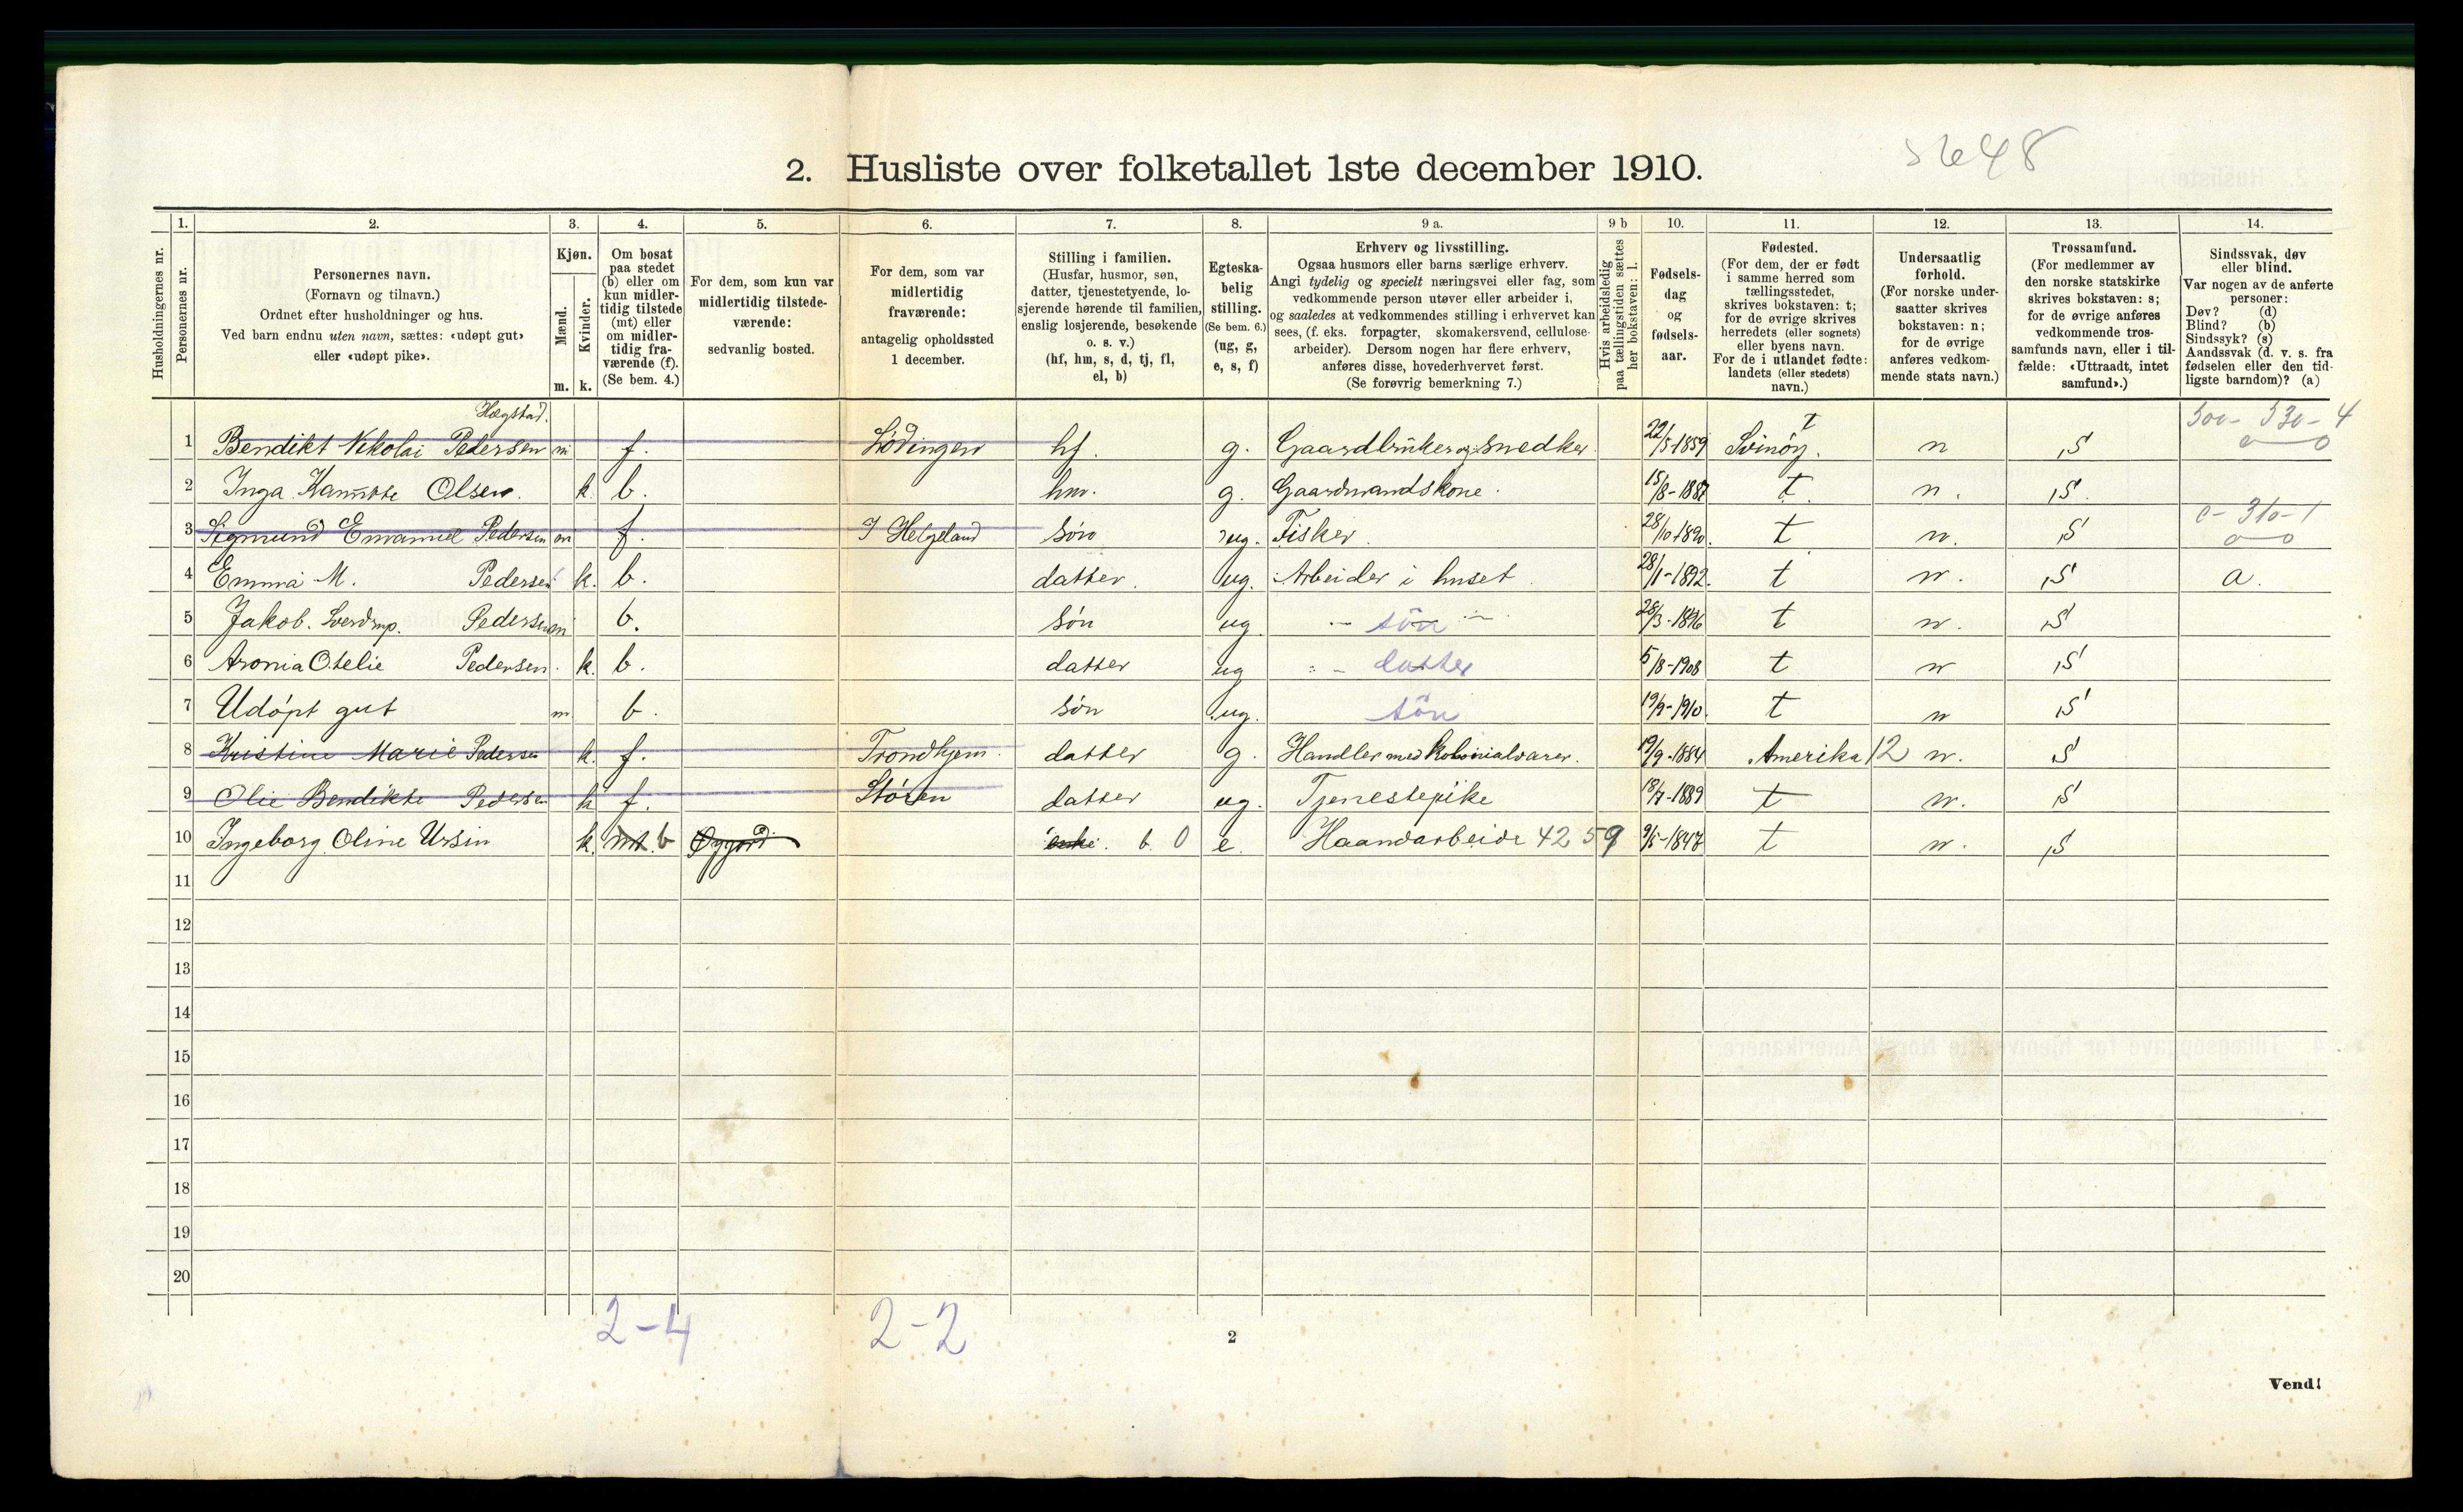 5648
2. Husliste over folketallet 1ste december 1910.
Husholdningernes nr.
1.
Personernes nr.
2.
Personernes navn.
(Fornavn og tilnavn.)
Ordnet efter husholdninger og hus.
Ved barn endnu uten navn, sættes: «udøpt gut»
eller «udøpt pike».
3.
Kjøn.
Mænd.
Kvinder.
m. k.
4.
Om bosat
paa stedet
(b) eller om
kun midler-
tidig tilstede
(mt) eller
om midler-
tidig fra-
værende (f).
(Se bem. 4.)
5.
For dem, som kun var
midlertidig tilstede-
værende:
sedvanlig bosted.
6.
For dem, som var
midlertidig
fraværende:
antagelig opholdssted
1 december.
7.
Stilling i familien.
(Husfar, husmor, søn,
datter, tjenestetyende, lo-
sjerende hørende til familien,
enslig losjerende, besøkende
o. s. v.)
(hf, hm, s, d, tj, fl,
el, b)
8.
Egteska-
belig
stilling.
(Se bem. 6.)
(ug, g,
e, s, f)
9 a.
Erhverv og livsstilling.
Ogsaa husmors eller barns særlige erhverv.
Angi tydelig og specielt næringsvei eller fag, som
vedkommende person utøver eller arbeider i,
og saaledes at vedkommendes stilling i erhvervet kan
sees, (f. eks. forpagter, skomakersvend, cellulose-
arbeider). Dersom nogen har flere erhverv,
anføres disse, hovederhvervet først.
(Se forøvrig bemerkning 7.)
9 b
Hvis arbeidsledig
paa tællingstiden sættes
her bokstaven: l.
10.
Fødsels-
dag
og
fødsels-
aar.
11.
Fødested.
(For dem, der er født
i samme herred som
tællingsstedet,
skrives bokstaven: t;
for de øvrige skrives
herredets (eller sognets)
eller byens navn.
For de i utlandet fødte:
landets (eller stedets)
navn.)
12.
Undersaatlig
forhold.
(For norske under-
saatter skrives
bokstaven: n;
for de øvrige
anføres vedkom-
mende stats navn.)
13.
Trossamfund.
(For medlemmer av
den norske statskirke
skrives bokstaven: s;
for de øvrige anføres
vedkommende tros-
samfunds navn, eller i til-
fælde: «Uttraadt, intet
samfund».)
14.
Sindssvak, døv
eller blind.
Var nogen av de anførte
personer:
Døv? (d)
Blind? (b)
Sindssyk? (s)
Aandssvak (d. v. s. fra
fødselen eller den tid-
ligste barndom)? (a)
Hægstad. t 500 - 530 - 4
1 Bendikt Nikolai Pedersen m f. Lödingen hf. g. Gaardbruker og snedker 22/5 1859 Svinöy. n S 0 — 0
2 Inga Olsen. k. b. hm. g. Gaardmandskone. 15/8 - 1887 t. n. S
0 - 310 - 1
3 Sigmund Emanuel Pedersen m f. I Helgeland sön ug. Fisker. 28/10 1890. t n. S 0 — 0
4 Emma M. Pedersen k. b. datter. ug. Arbeider i huset 28/1 - 1892. t n. S a.
5 Jakob. Sverdrup. Pedersen m b. sön ug. — sön — 28/3 - 1896 t n. S
6 Aronia Otelie Pedersen. k. b. datter ug — datter 5/8 - 1908 t n S
7 Udöpt gut m b. sön ug. sön 19/9 - 1910. t n S
8 Kristine Marie Pedersen k. f. Trondhjem. datter g. Handler med kolonialvarer. 19/9 - 1884 Amerika 12 n. S
9 Olie Bendikte Pedersen k f. Stören datter ug. Tjenestepike 18/7 - 1889 t n. S
10 Ingeborg Oline Ursin k. mt. b Öygard enke. b. 0 e. Haandarbeide 42 59 9/5 - 1847 t n. S
11
12
13
14
15
16
17
18
19
20
2 - 4 2 - 2
2
Vend!